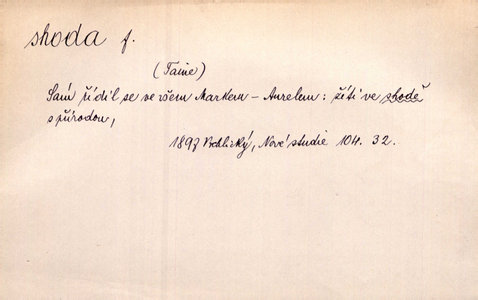 shoda f.
(Taine)
Sám řídil se ve všem Markem – Aurelem: žíti ve shodě
s přírodou,
1897 Vrchlický, Nové studie 104. 32.